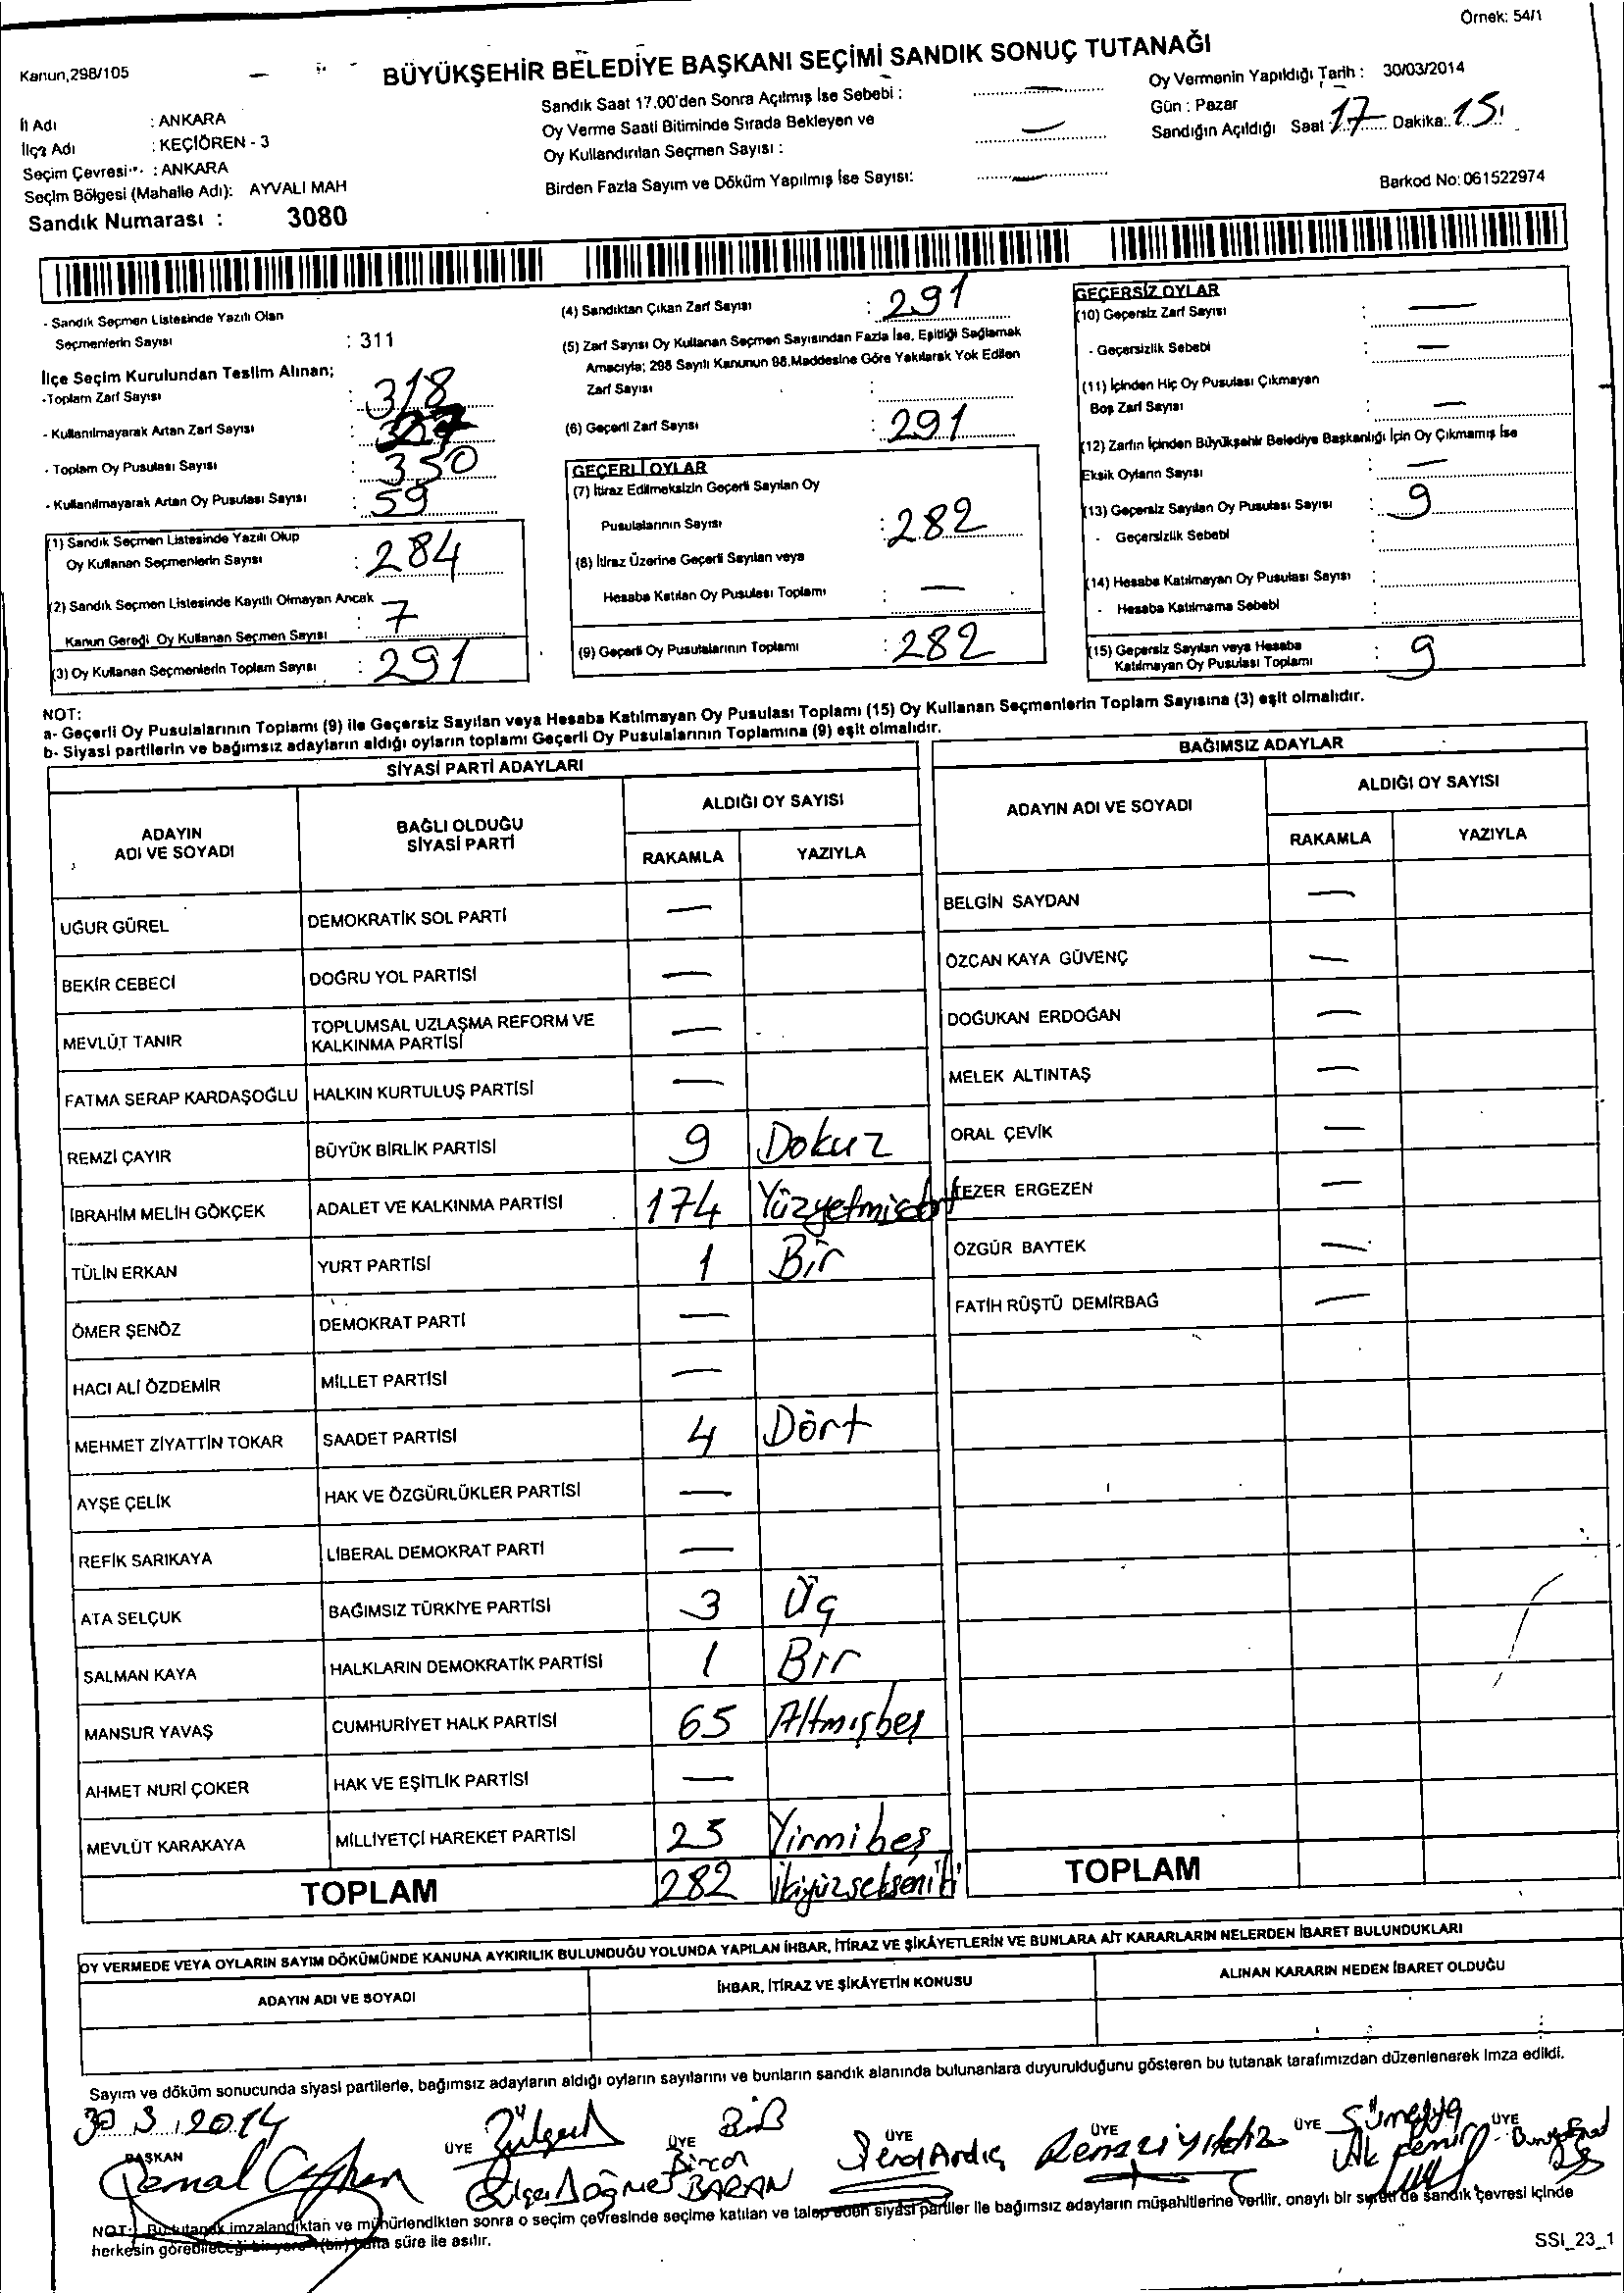 Örnek: 54/1
Kanun,298/105
BÜYÜKŞEHİR BELEDİYE BAŞKANI SEÇİMİ SANDIK SONUÇ TUTANAĞI
İl Adı : ANKARA
İlçe Adı : KEÇİÖREN - 3
Seçim Çevresi : ANKARA
Seçim Bölgesi (Mahalle Adı): AYVALI MAH
Sandık Numarası : 3080
Sandık Saat 17.00'den Sonra Açılmış İse Sebebi : —
Oy Verme Saati Bitiminde Sırada Bekleyen ve
Oy Kullandırılan Seçmen Sayısı : —
Birden Fazla Sayım ve Döküm Yapılmış İse Sayısı: —
Oy Vermenin Yapıldığı Tarih : 30/03/2014
Gün : Pazar
Sandığın Açıldığı Saat : 17 Dakika: 15
Barkod No: 061522974
- Sandık Seçmen Listesinde Yazılı Olan
Seçmenlerin Sayısı : 311
İlçe Seçim Kurulundan Teslim Alınan;
-Toplam Zarf Sayısı : 318
- Kullanılmayarak Artan Zarf Sayısı :
- Toplam Oy Pusulası Sayısı : 350
- Kullanılmayarak Artan Oy Pusulası Sayısı : 59
(1) Sandık Seçmen Listesinde Yazılı Olup
Oy Kullanan Seçmenlerin Sayısı : 284
(2) Sandık Seçmen Listesinde Kayıtlı Olmayan Ancak
Kanun Gereği Oy Kullanan Seçmen Sayısı : 7
(3) Oy Kullanan Seçmenlerin Toplam Sayısı : 291
(4) Sandıktan Çıkan Zarf Sayısı : 291
(5) Zarf Sayısı Oy Kullanan Seçmen Sayısından Fazla İse, Eşitliği Sağlamak
Amacıyla; 298 Sayılı Kanunun 98.Maddesine Göre Yakılarak Yok Edilen
Zarf Sayısı :
(6) Geçerli Zarf Sayısı : 291
GEÇERLİ OYLAR
(7) İtiraz Edilmeksizin Geçerli Sayılan Oy
Pusulalarının Sayısı : 282
(8) İtiraz Üzerine Geçerli Sayılan veya
Hesaba Katılan Oy Pusulası Toplamı : —
(9) Geçerli Oy Pusulalarının Toplamı : 282
GEÇERSİZ OYLAR
(10) Geçersiz Zarf Sayısı : —
- Geçersizlik Sebebi : —
(11) İçinden Hiç Oy Pusulası Çıkmayan
Boş Zarf Sayısı : —
(12) Zarfın İçinden Büyükşehir Belediye Başkanlığı İçin Oy Çıkmamış İse
Eksik Oyların Sayısı : —
(13) Geçersiz Sayılan Oy Pusulası Sayısı : 9
- Geçersizlik Sebebi :
(14) Hesaba Katılmayan Oy Pusulası Sayısı :
- Hesaba Katılmama Sebebi :
(15) Geçersiz Sayılan veya Hesaba
Katılmayan Oy Pusulası Toplamı : 9
NOT:
a- Geçerli Oy Pusulalarının Toplamı (9) ile Geçersiz Sayılan veya Hesaba Katılmayan Oy Pusulası Toplamı (15) Oy Kullanan Seçmenlerin Toplam Sayısına (3) eşit olmalıdır.
b- Siyasi partilerin ve bağımsız adayların aldığı oyların toplamı Geçerli Oy Pusulalarının Toplamına (9) eşit olmalıdır.
SİYASİ PARTİ ADAYLARI
ADAYIN ADI VE SOYADI BAĞLI OLDUĞU SİYASİ PARTİ ALDIĞI OY SAYISI
RAKAMLA YAZIYLA
UĞUR GÜREL DEMOKRATİK SOL PARTİ —
BEKİR CEBECİ DOĞRU YOL PARTİSİ —
MEVLÜT TANIR TOPLUMSAL UZLAŞMA REFORM VE KALKINMA PARTİSİ —
FATMA SERAP KARDAŞOĞLU HALKIN KURTULUŞ PARTİSİ —
REMZİ ÇAYIR BÜYÜK BİRLİK PARTİSİ 9 Dokuz
İBRAHİM MELİH GÖKÇEK ADALET VE KALKINMA PARTİSİ 174 Yüzyetmişdört
TÜLİN ERKAN YURT PARTİSİ 1 Bir
ÖMER ŞENÖZ DEMOKRAT PARTİ —
HACI ALİ ÖZDEMİR MİLLET PARTİSİ —
MEHMET ZİYATTİN TOKAR SAADET PARTİSİ 4 Dört
AYŞE ÇELİK HAK VE ÖZGÜRLÜKLER PARTİSİ —
REFİK SARIKAYA LİBERAL DEMOKRAT PARTİ —
ATA SELÇUK BAĞIMSIZ TÜRKİYE PARTİSİ 3 Üç
SALMAN KAYA HALKLARIN DEMOKRATİK PARTİSİ 1 Bir
MANSUR YAVAŞ CUMHURİYET HALK PARTİSİ 65 Altmışbeş
AHMET NURİ ÇOKER HAK VE EŞİTLİK PARTİSİ —
MEVLÜT KARAKAYA MİLLİYETÇİ HAREKET PARTİSİ 25 Yirmibeş
TOPLAM 282 İkiyüzsekseniki
BAĞIMSIZ ADAYLAR
ADAYIN ADI VE SOYADI ALDIĞI OY SAYISI
RAKAMLA YAZIYLA
BELGİN SAYDAN —
ÖZCAN KAYA GÜVENÇ —
DOĞUKAN ERDOĞAN —
MELEK ALTINTAŞ —
ORAL ÇEVİK —
TEZER ERGEZEN —
ÖZGÜR BAYTEK —
FATİH RÜŞTÜ DEMİRBAĞ —
TOPLAM
OY VERMEDE VEYA OYLARIN SAYIM DÖKÜMÜNDE KANUNA AYKIRILIK BULUNDUĞU YOLUNDA YAPILAN İHBAR, İTİRAZ VE ŞİKÂYETLERİN VE BUNLARA AİT KARARLARIN NELERDEN İBARET BULUNDUKLARI
ADAYIN ADI VE SOYADI İHBAR, İTİRAZ VE ŞİKÂYETİN KONUSU ALINAN KARARIN NEDEN İBARET OLDUĞU
Sayım ve döküm sonucunda siyasi partilerle, bağımsız adayların aldığı oyların sayılarını ve bunların sandık alanında bulunanlara duyurulduğunu gösteren bu tutanak tarafımızdan düzenlenerek imza edildi.
30 3 2014
BAŞKAN ÜYE ÜYE ÜYE ÜYE ÜYE ÜYE
Bircan
BARAN
NOT: Bu tutanak imzalandıktan ve mühürlendikten sonra o seçim çevresinde seçime katılan ve talep eden siyasi partiler ile bağımsız adayların müşahitlerine verilir, onaylı bir sureti de sandık çevresi içinde
herkesin görebileceği bir yere 1 (bir) hafta süre ile asılır.
SSI_23_1